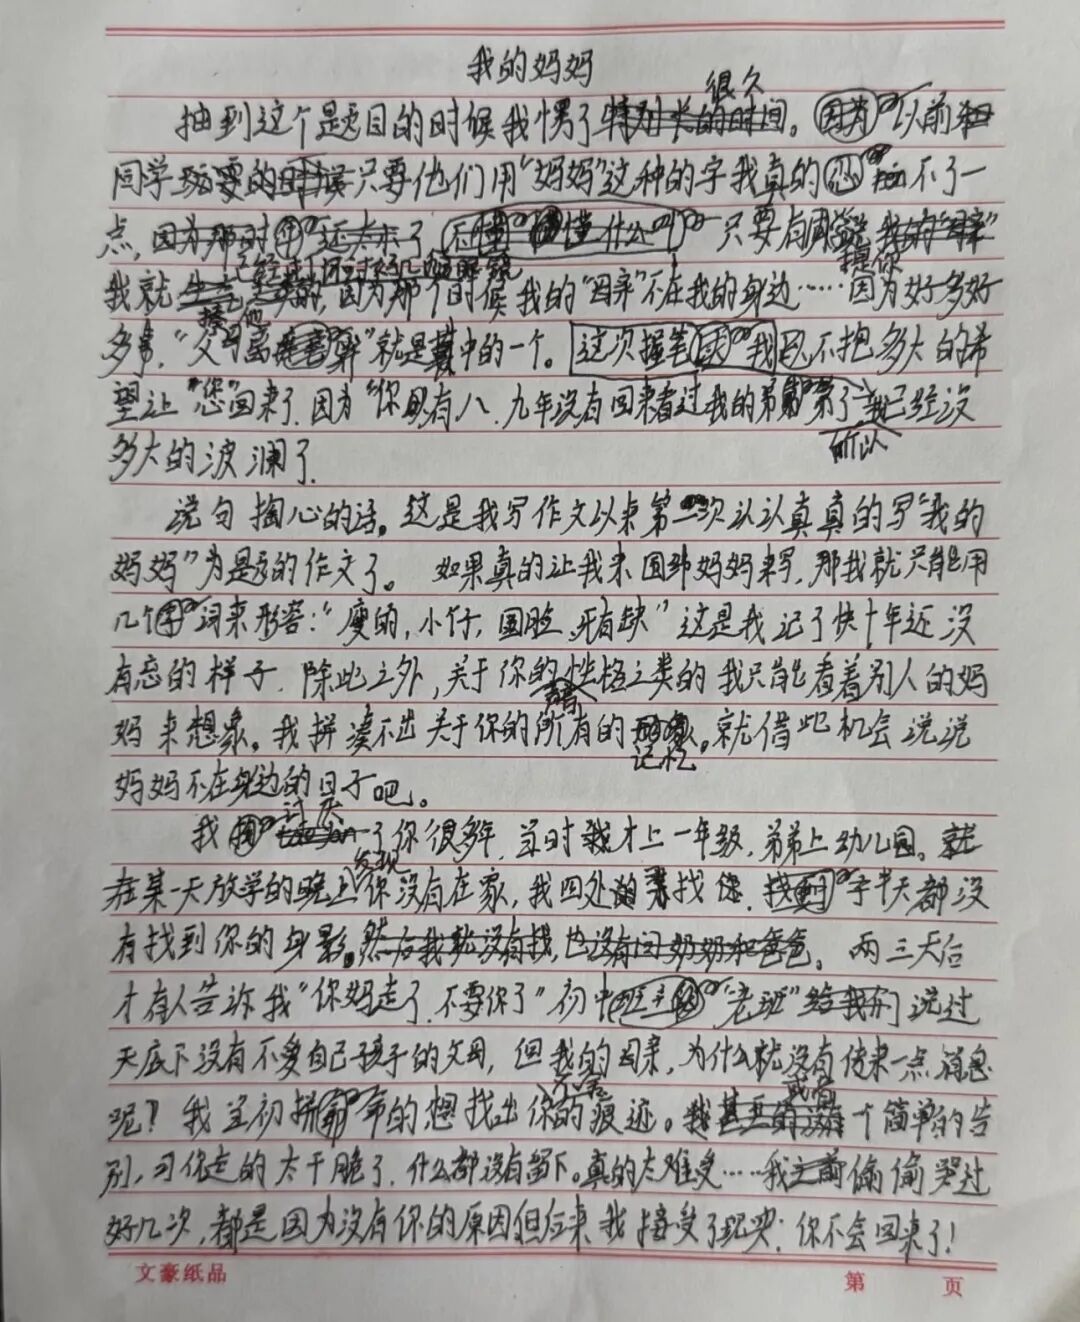 我的妈妈
很久
抽到这个题目的时候我愣了特别长的时间。因为以前和
同学玩耍的时候只要他们用“妈妈”这种的字我真的忍不了一
点,因为那时年还太小了不懂什么叫只要有同学说我的“母亲”
提你
我就生气,因为那个时候我的“母亲”不在我的身边……因为好多好
多事,“父母离异”就是其中的一个。这次握笔因我已不抱多大的希
望让“您”回来了.因为“你”already有八、九年没有回来看过我的弟弟了我已经没
所以
多大的波澜了.
说句掏心的话。这是我写作文以来第一次认认真真的写“我的
妈妈”为题的作文了。如果真的让我来围绕妈妈来写,那我就只能用
几个词来形容:“瘦的,小仔,圆脸,牙有缺”这是我记了快十年还没
有忘的样子.除此之外,关于你的性格之类的我只能看着别人的妈
声音
妈来想象。我拼凑不出关于你的所有的。就借此机会说说
记忆
妈妈不在身边的日子吧。
讨厌
我了你很多年,当时我才上一年级,弟弟上幼儿园。就
发现
在某一天放学的晚上你没有在家,我四处的寻找您.找了半天都没
有找到你的身影。然后我就没有找,也没有问奶奶和爸爸。两三天后
才有人告诉我“你妈走了,不要你了”初中班主任“老班”给我们说过
天底下没有不爱自己孩子的父母,但我的母亲,为什么就没有传来一点消息
或者
呢?我当初拼命的想找出你的痕迹。我甚至的没有个简单的告
别,可你走的太干脆了.什么都没有留下。真的太难受……我之前偷偷哭过
好几次,都是因为没有你的原因但后来我接受了现实:你不会回来了!
文豪纸品
第 页